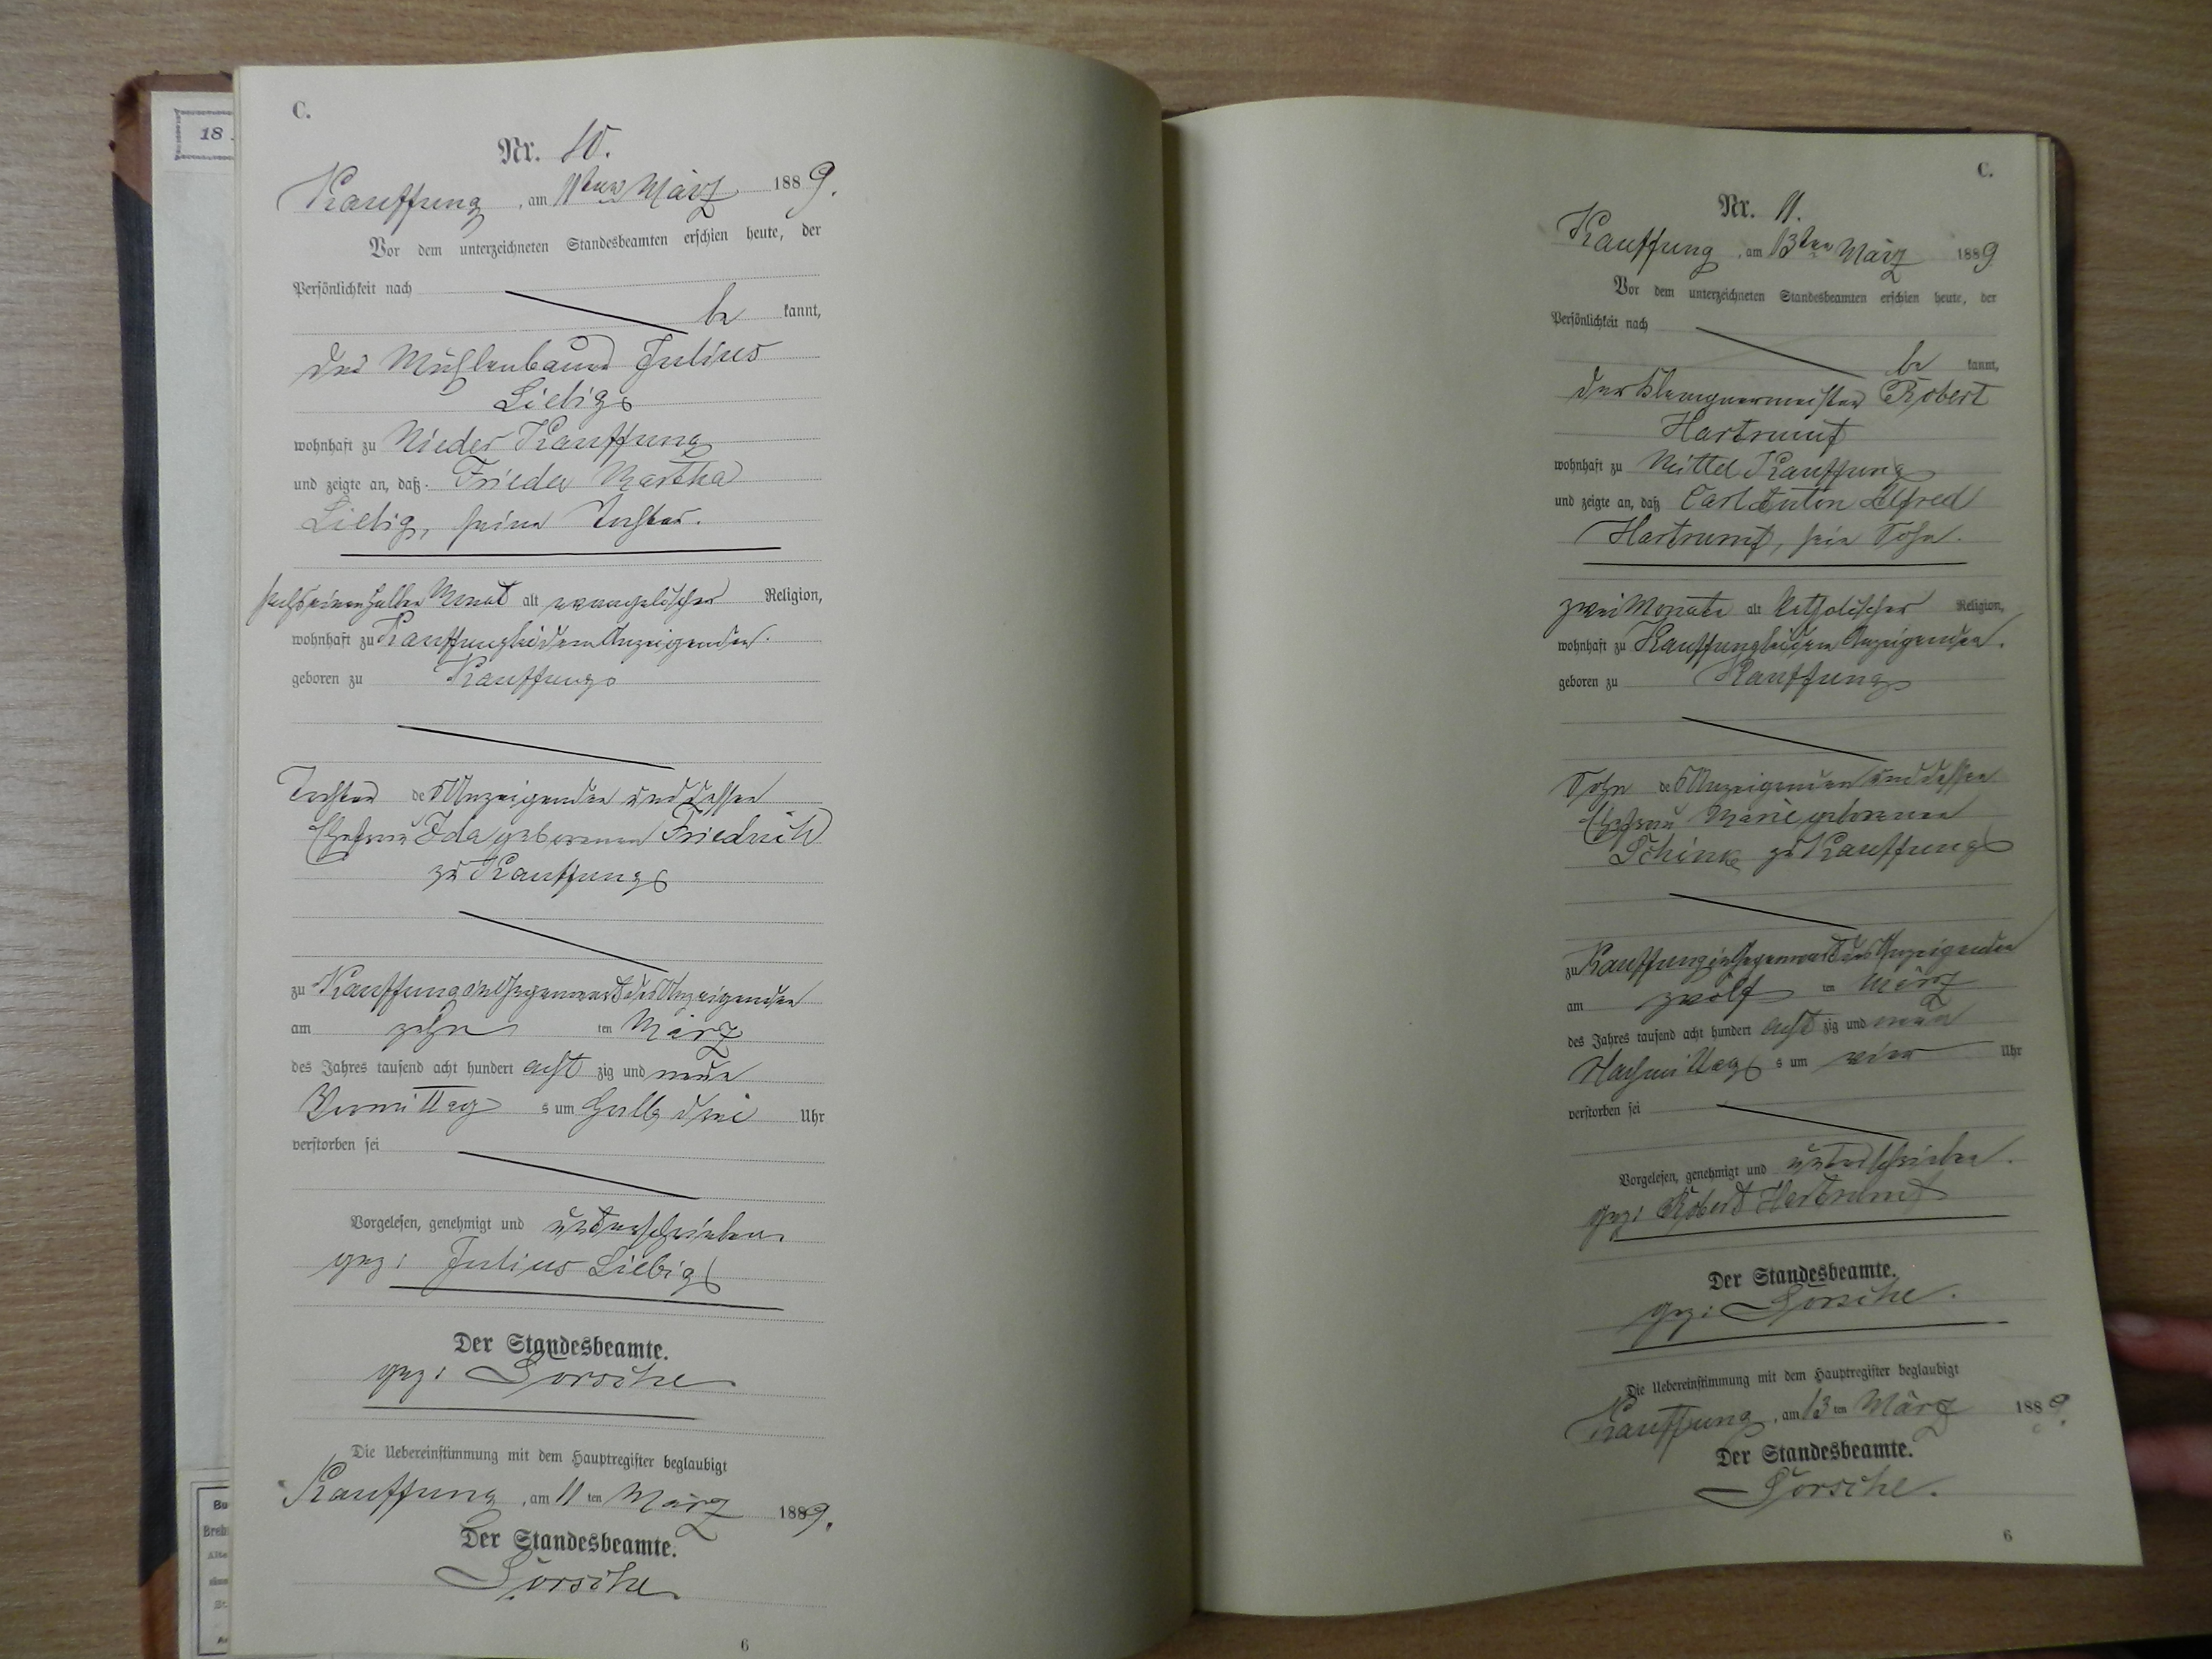 18
C.
Nr. 10.
Kauffung, am 11ten März 1889.
Vor dem unterzeichneten Standesbeamten erschien heute, der
Persönlichkeit nach
be kannt,
Julius
Liebig
wohnhaft zu Nieder Kauffung
und zeigte an, daß Frieda Martha
Liebig, seine Tochter.
Monat alt evangelischer Religion,
wohnhaft zu Kauffung bei dem Anzeigenden.
geboren zu Kauffung
Tochter des Anzeigenden und dessen
Ehefrau Ida geborenen Friedrich
zu Kauffung
zu Kauffung in Gegenwart des Anzeigenden
am zehn ten März
des Jahres tausend acht hundert acht zig und neun
Vormittag s um halb drei Uhr
verstorben sei
Vorgelesen, genehmigt und unterschrieben.
gez: Julius Liebig
Der Standesbeamte.
gez:
Die Uebereinstimmung mit dem Hauptregister beglaubigt
Kauffung, am 11 ten März 1889.
Der Standesbeamte.
6
C.
Nr. 11.
Kauffung, am 13ten März 1889
Vor dem unterzeichneten Standesbeamten erschien heute, der
Persönlichkeit nach
be kannt,
der Klempnermeister Robert
Hartrumpf
wohnhaft zu Mittel Kauffung
und zeigte an, daß Carl Anton Alfred
Hartrumpf, sein Sohn.
zwei Monate alt katholischer Religion,
wohnhaft zu Kauffung bei dem Anzeigenden.
geboren zu Kauffung
Sohn des Anzeigenden und dessen
Ehefrau Marie geborenen
Schink zu Kauffung
zu Kauffung in Gegenwart des Anzeigenden
am zwölf ten März
des Jahres tausend acht hundert acht zig und neun
Nachmittag s um vier Uhr
verstorben sei
Vorgelesen, genehmigt und unterschrieben.
gez: Robert Hartrumpf
Der Standesbeamte.
gez:
Die Uebereinstimmung mit dem Hauptregister beglaubigt
Kauffung, am 13 ten März 1889.
Der Standesbeamte.
6